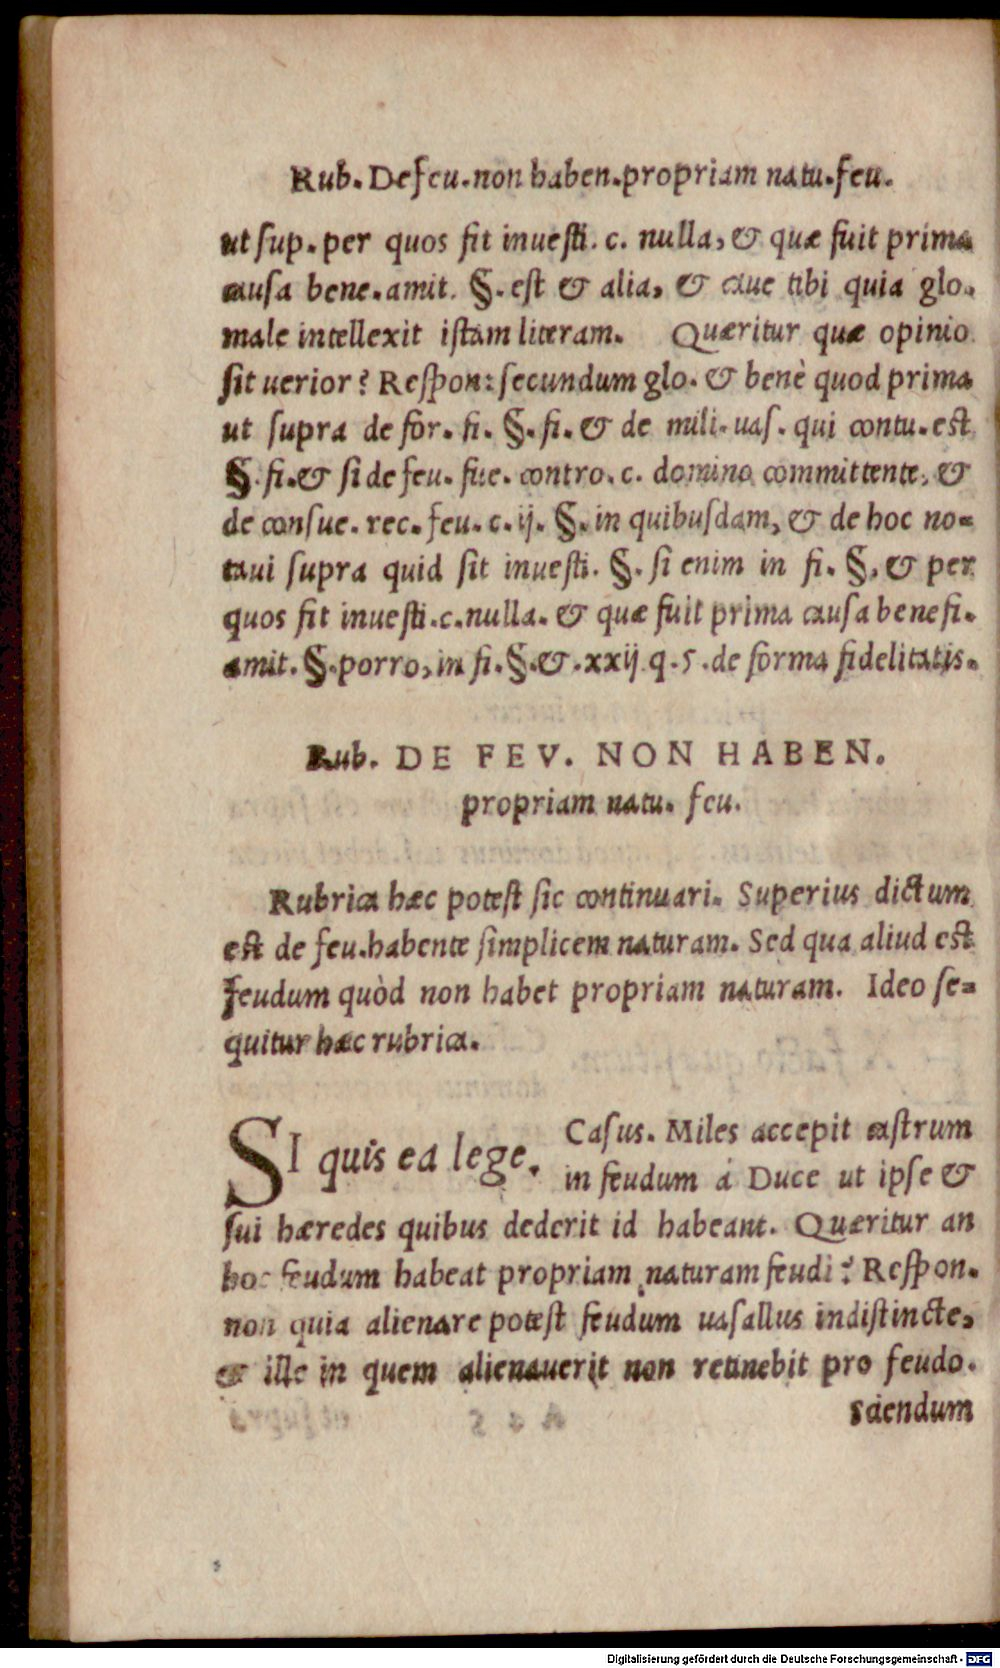 Rub. De feu. non haben. propriam natu. feu.
ut sup. per quos fit inuesti. c. nulla, & quæ fuit prima
causa bene. amit. §. est & alia, & caue tibi quia glo.
male intellexit istam literam. Quæritur quæ opinio
sit uerior? Respon: secundum glo. & benè quod prima
ut supra de for. fi. §. fi. & de mili. uas. qui contu. est
§. fi. & si de feu. fue. contro. c. domino committente, &
de consue. rec. feu. c. ij. §. in quibusdam, & de hoc no-
taui supra quid sit inuesti. §. si enim in fi. §. & per
quos fit inuesti. c. nulla. & quæ fuit prima causa benefi.
amit. §. porro, in fi. §. &. xxij q. 5. de forma fidelitatis.
Rub. DE FEV. NON HABEN.
propriam natu. feu.
Rubrica hæc potest sic continuari. Superius dictum
est de feu. habente simplicem naturam. Sed qua aliud est
feudum quòd non habet propriam naturam. Ideo se-
quitur hæc rubrica.
SI quis ea lege. Casus. Miles accepit castrum
in feudum á Duce ut ipse &
sui hæredes quibus dederit id habeant. Quæritur an
hoc feudum habeat propriam naturam feudi? Respon.
non quia alienare potest feudum uasallus indistincte,
& ille in quem alienauerit non retinebit pro feudo.
Sciendum
Digitalisierung gefördert durch die Deutsche Forschungsgemeinschaft - DFG